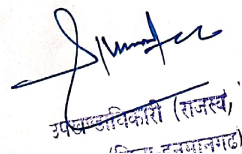 उपखण्डाधिकारी (राजस्व,
(जिला हनुमानगढ)